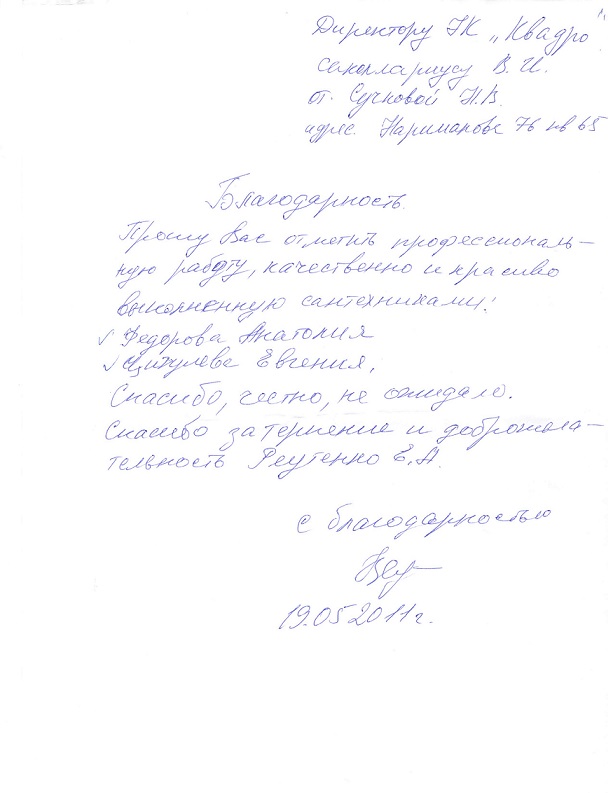 Директору УК „Квадро"
Сакеллариусу В.И.
от Сучковой Н.В.
адрес. Нариманова 76 кв 65
Благодарность.
Прошу Вас отметить профессиональ-
ную работу, качественно и красиво
выполненную сантехниками:
√ Федорова Анатолия
√ Евгения,
Спасибо, честно, не ожидала.
Спасибо за терпение и доброжела-
тельность Реутенко Е.А.
с благодарностью
19.05 2011г.